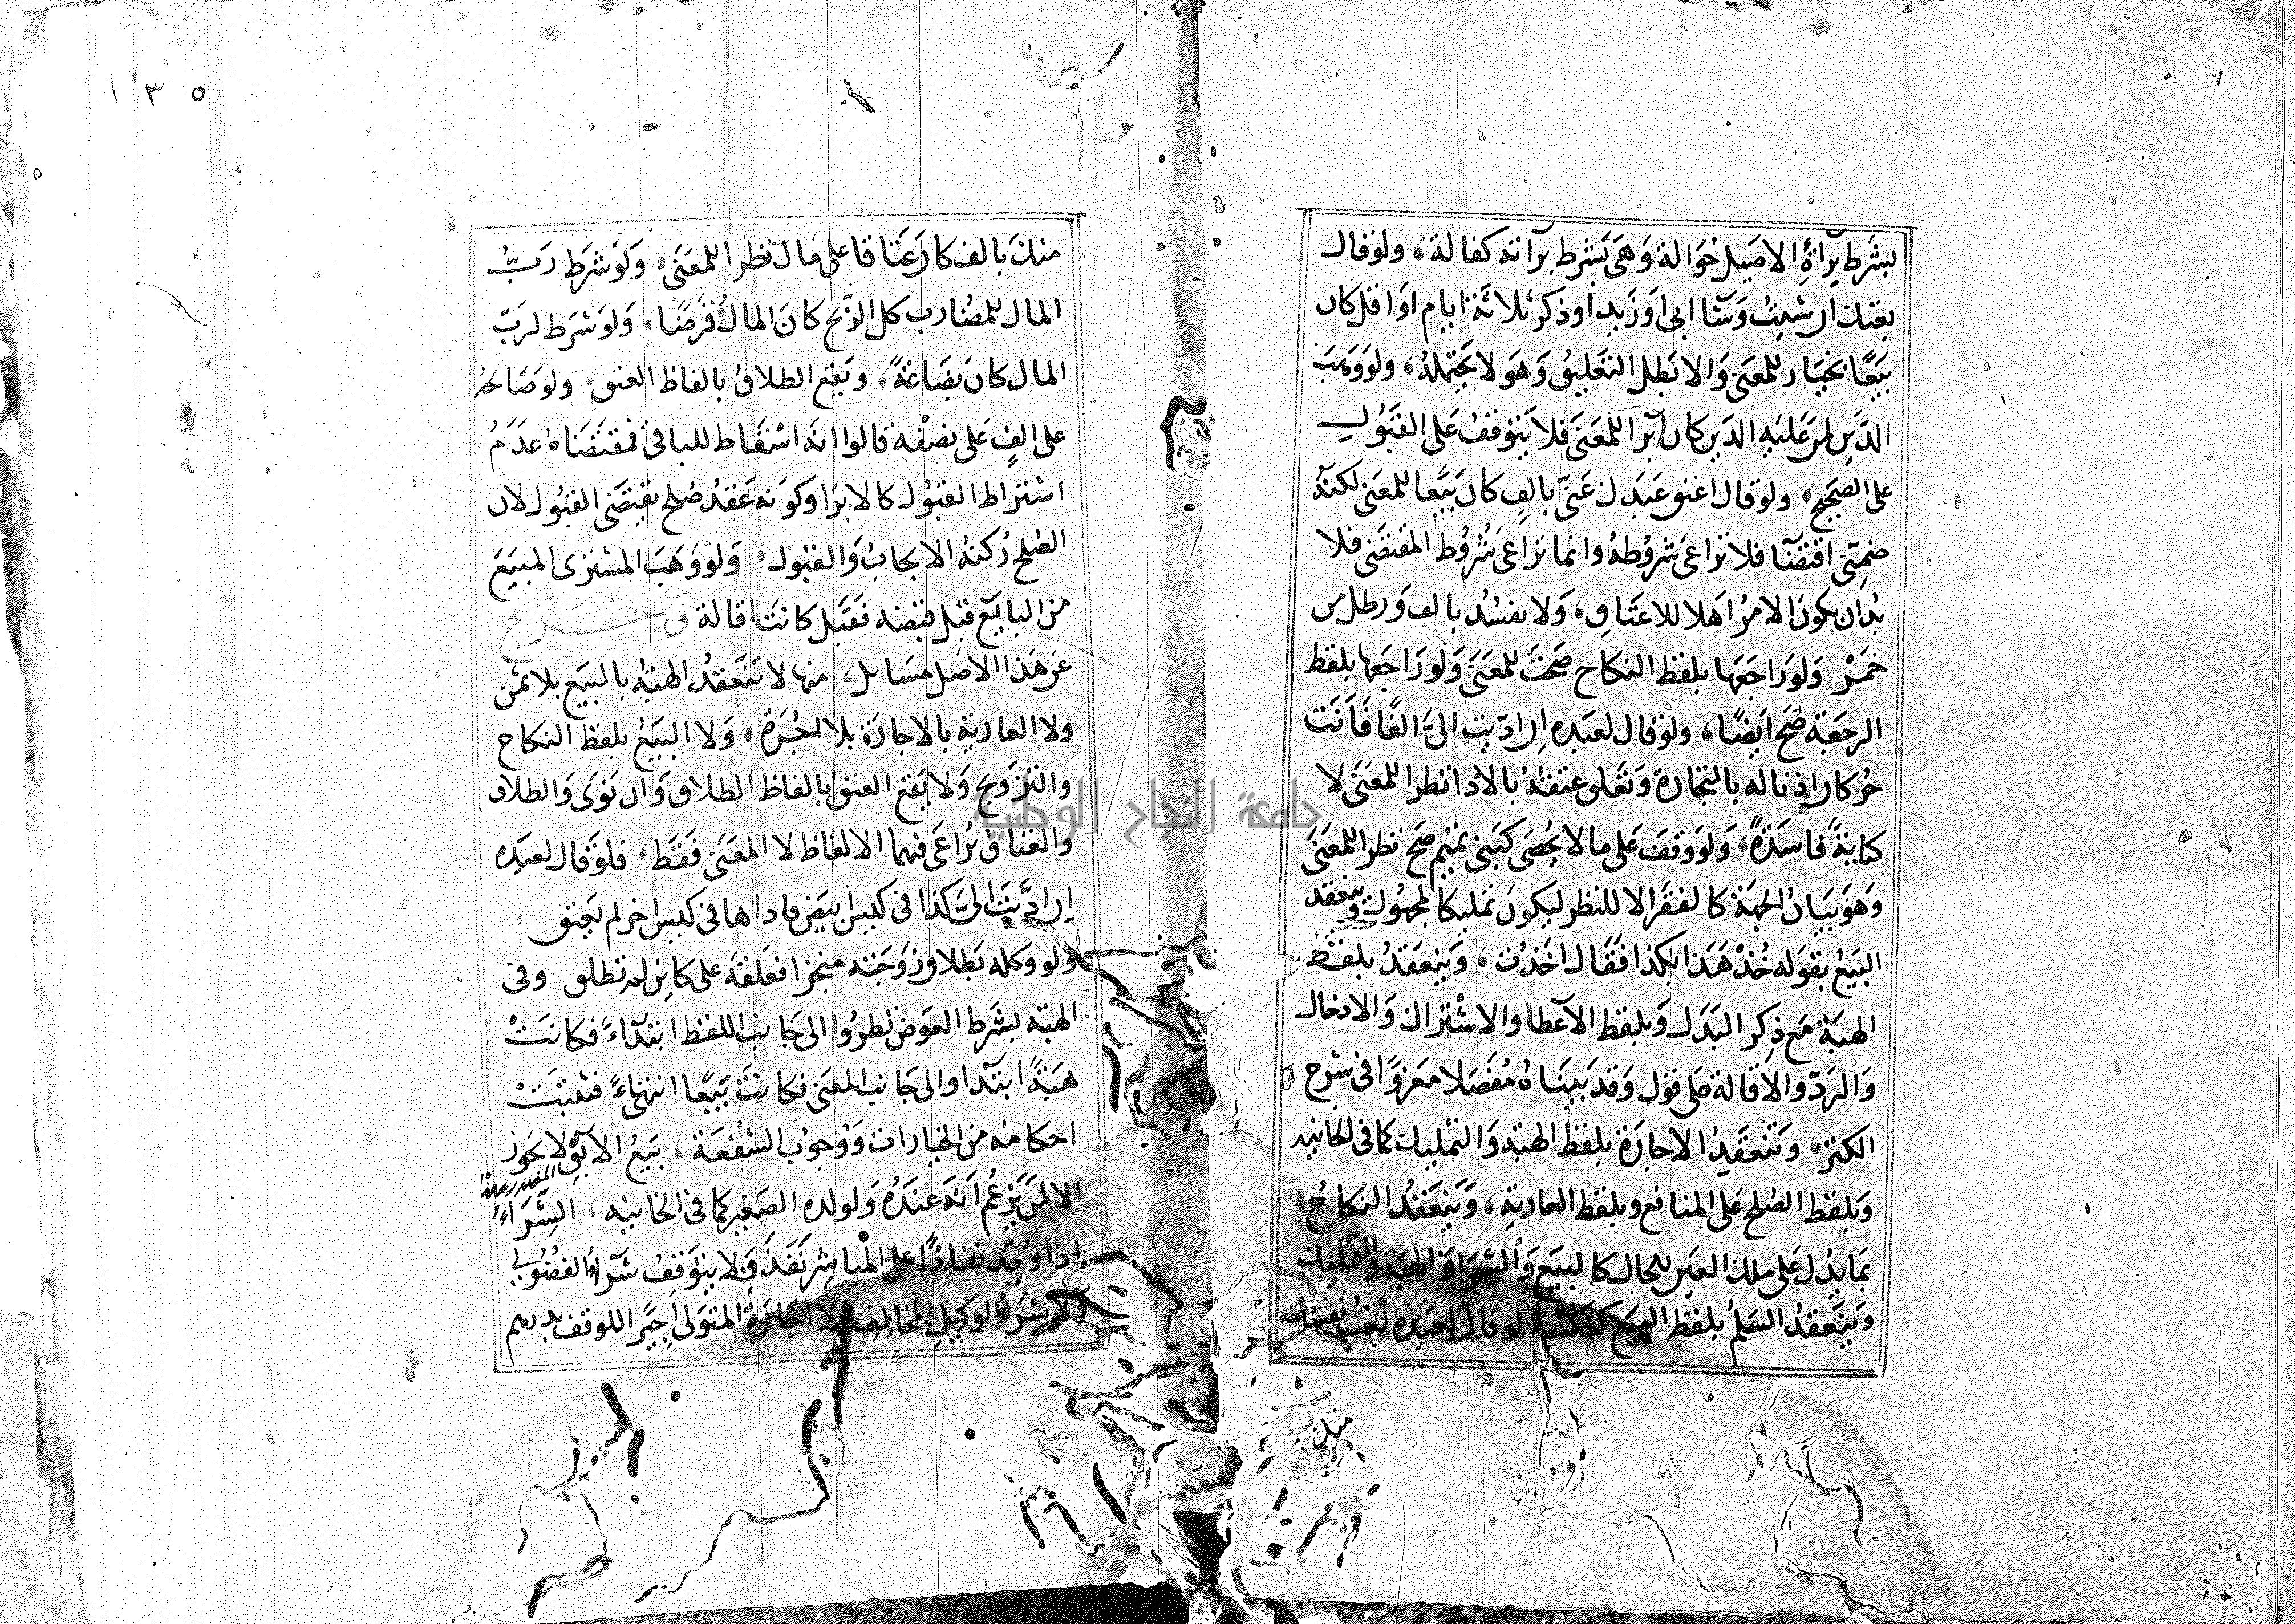 بشَرط برَاَةِ الاصَيل حَوَالة وَهَى بَشرط برآته كفالة، ولوقال
بعتك ان شئِت وَشَا ابى اوَزَيد اوذكر ثلاثة ايام اوَاقل كان
بَيَعًا بخيَار للمعَنى وَالا بَطل التعَليق وَهوَ لا يحَتمله، ولووَهبَ
الدَين لمن عَليَه الدَين كان ابرَا للمعَنى فلا يَتوَقف عَلى القبَوُل
على الصحيح، ولوقال اعتق عَبَدك عَنىّ بالفٍ كان بَيَعا للمعَنى لكنه
ضمِنىّ اقتضآ فلا ترَاعى شروُطه وانما ترَاعى شُرُوُط المقتضَى فلا
بُدّ ان يكوُن الامرُ اهَلا للاعتَاقِ، وَلا يفسُدُ بالف وَرطل من
خمَرْ وَلوَرَاجَعَها بلفظ النكاح صَحتَ للمعَنَى وَلورَاجعَها بلفظ
الرجعَة صَح ايَضًا، ولوَقال لعَبَده ان ادّيت الىّ الفًا فَاَنت
حُر كان اذناله بالتجارة وَتعَلق عتقهُ بالادا نظرا للمعَنى لا
كتابةً فاسَدَةً، وَلوَوَقفَ عَلى مالا يُحُصَى كَبَنى تميَم صَح نظرا للمعَنَى
وَهوَ بيَان الجهَة كالفقرَا لا للنظر ليكوُنَ تمليكا لمجهوُل وينعقد
البَيعُ بقوَله خُذْ هَذا بكذا فقَال اخَذُت، وَيَنعَقدُ بلفظ
الهبَة مَع ذِكر البَدَل وَبلفظ الآعطا والاشْترَاك وَالادخال
وَالرَدّ والاقالة عَلى قوَل وَقد بَينَاهُ مُفصَلا معَزوًّا فى شرح
الكنز، وَتنَعقَدُ الاجارَة بلفظ الهبَة وَالتمليك كما فى الخانيَه
وَبلفظ الصُلح عَلى المنافع وبلفظ العاريَة، وَيَنعَقدُ النكاحُ
بمايدُل عَلى ملك العيَن للحال كالبَيَع وَالشِرَا وَالهبَة والتمليك
وَيَنعَقدُ السَلمُ بلفظ البيَع كعَكسْه لو قال لعَبَده بعَت نفسَك
منك
١٣٥
منك بالف كان عَتَاقا على مَال نظرا للمعَنَى، وَلوَشرَط رَبُّ
المال للمضَارب كل الرّبح كانَ المال قرَضًا، وَلوَ شرَط لربّ
المال كان بضَاعَةً، وَيقعَ الطلاقُ بالفاظ العتق، ولوصَالحهُ
على الفٍ عَلى نصْفه قالوا انه اسْقاط للباقى فمقتضَاهُ عدَمُ
اشتراط القبوُل كالابرَا وكوَنه عَقدُ صُلح يَقتضَى القبُول لان
الصُلح رُكنهُ الايجابُ وَالقبول، وَلووَهَبَ المشترى المبيَعَ
من البايَع قبَل قبَضه فقَبَل كانت اقالة وَخَرَج
عَن هَذا الاصَل مسَايل، منها لا تنَعَقدُ الهبَة بالبيَع بلاثمن
ولا العاريَة بالاجارَة بلا اجُرَة، وَلا البيَعُ بلفظ النكاح
والتزوَيج وَلا يقع العتق بالفاظ الطلاق وَان نوَى وَالطلاق
والعتاقُ يُرَاعَى فيهما الالفاظ لا المعَنى فقَط، فلوَقال لعَبَده
ان ادّيَت الىَّ كذا فى كيس ابيَض فاداها فى كيس اخر لم يَعتق
ولو وكله بَطلاق زوَجَته منجزا فعَلقه على كاين لم تطلق وفى
الهبَة بشَرط العوَض نظرُوا الى جَانب اللفظ ابتدَآءً فكانتْ
هبَةً ابتدَا والى جَانب المعَنى فكانت بَيَعًا انتهاءً فتثبتُ
احكامه من الخيارات وَوُجوُب الشفعَة، بَيَعُ الابَق لا يجوَز
الا لمن يَزعُم اَنه عندَهُ وَلولده الصَغير كما فى الخانيَه، الشِّرَآءُ
اذا وُجِد نفاذًا على المباشر نَفَذَ وَلا يَتوَقفُ شرَآء الفضوُلى
وَلا شرَآ الوكيل المخالف وَلا اجَارَةُ المتوَلى اجيَرا للوقف بدرهم